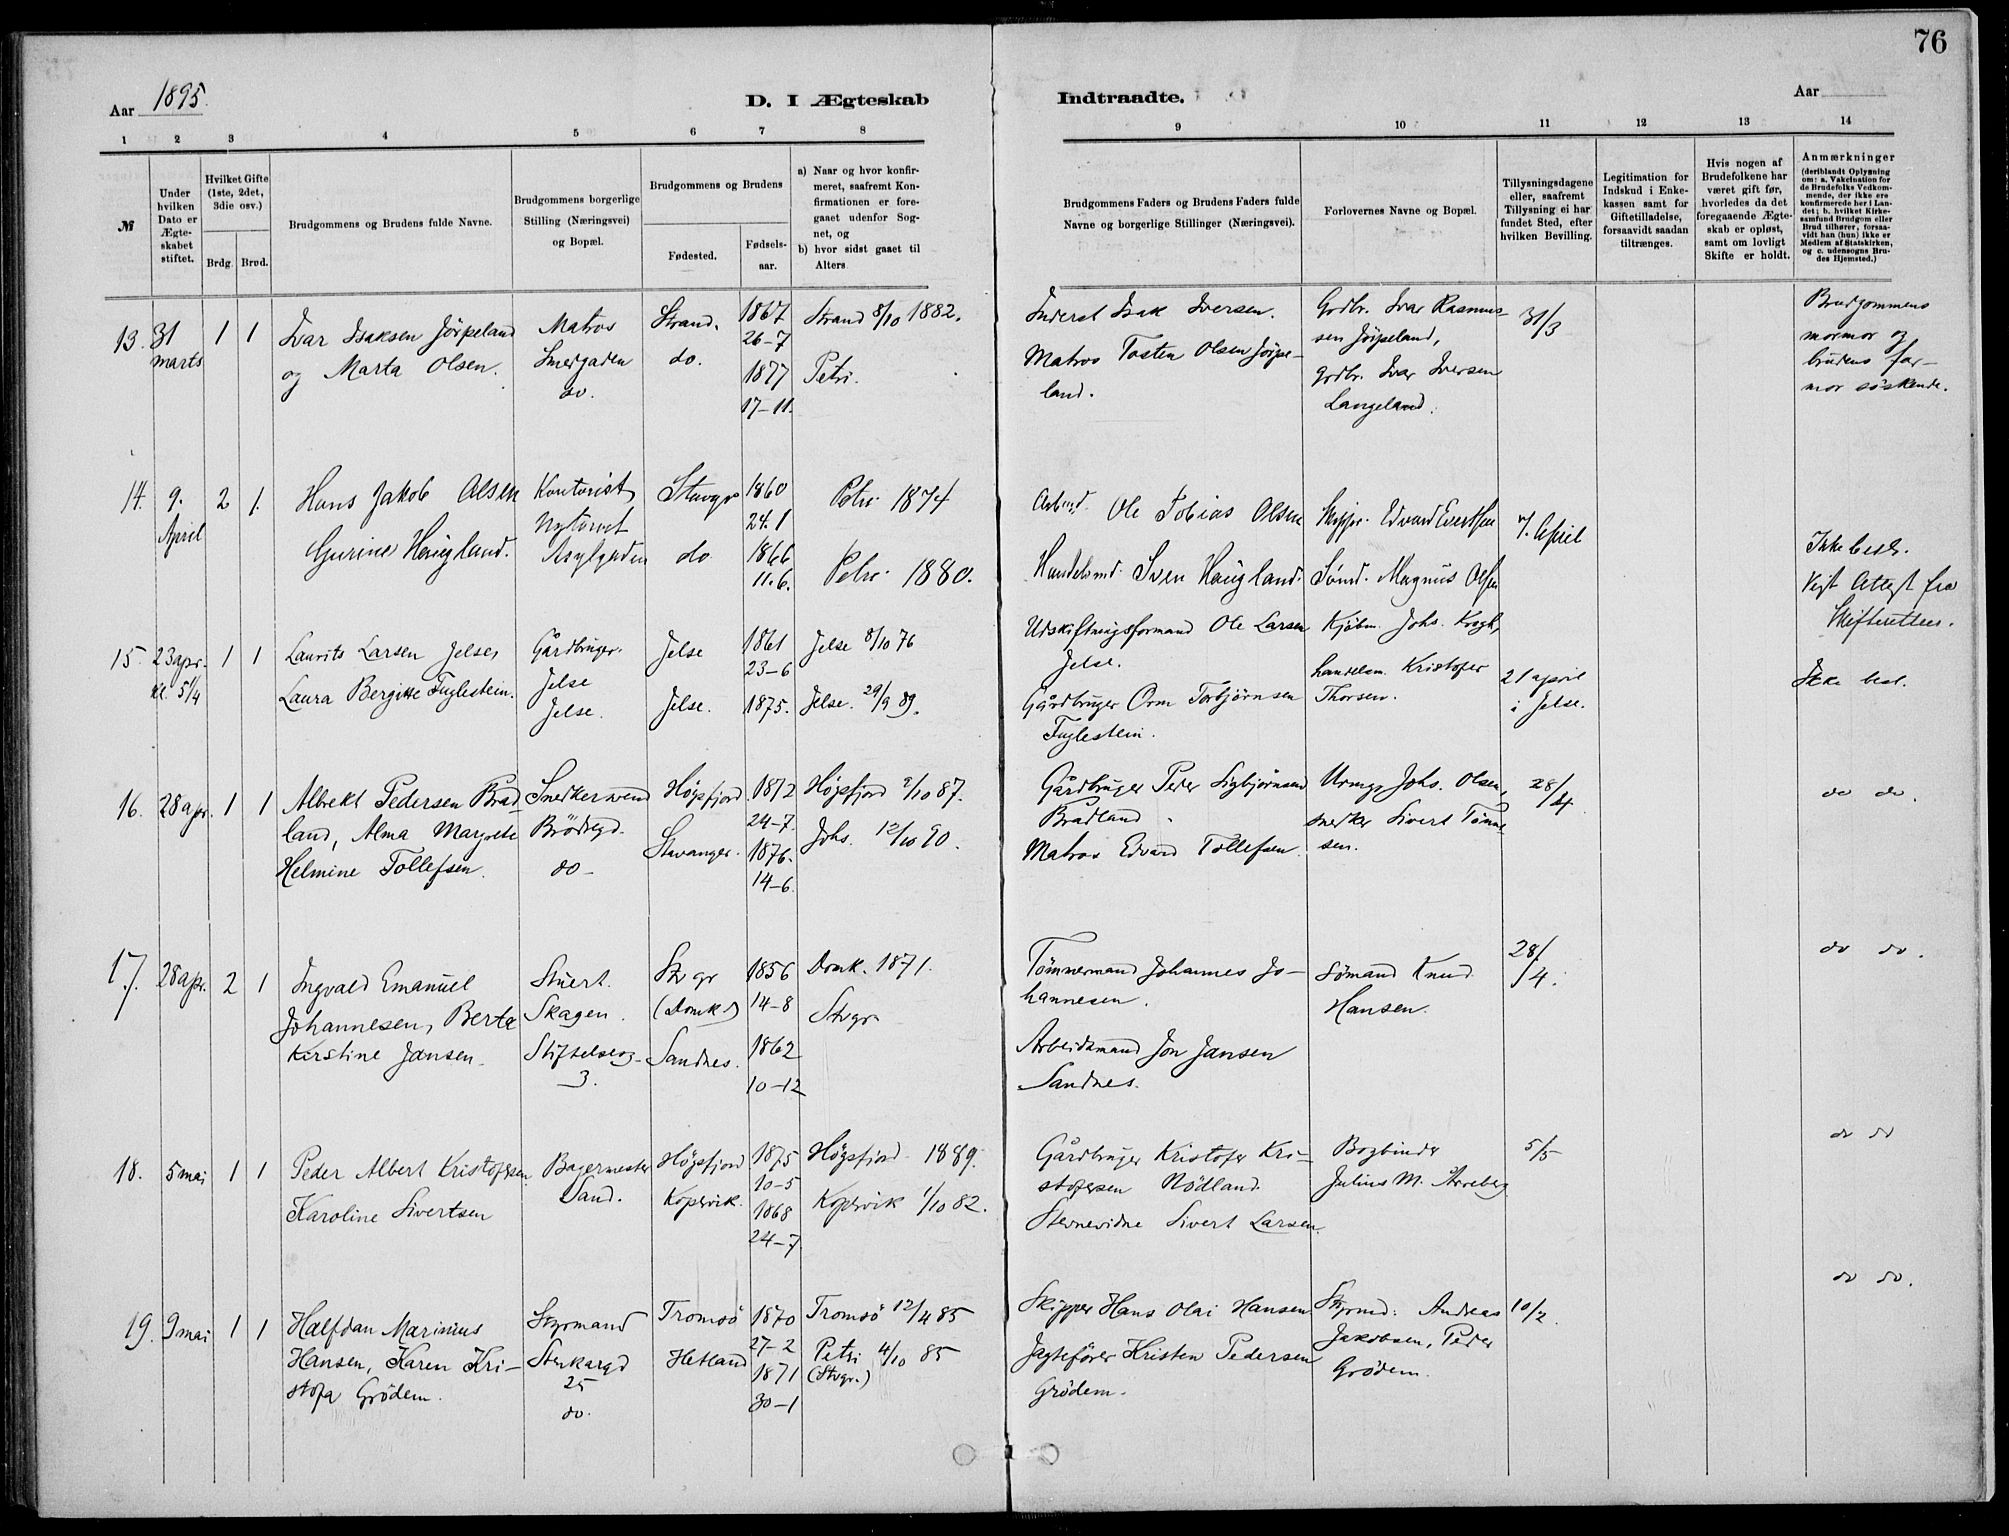 76
Aar 1895.
D. I Ægteskab
Indtraadte.
Aar
1 2 3 4 5 6 7 8
9 10 11 12 13 14
№
Under hvilken Dato er Ægteskabet stiftet.
Hvilket Gifte (1ste, 2det, 3die osv.)
Brdg. Brud.
Brudgommens og Brudens fulde Navne.
Brudgommens borgerlige Stilling (Næringsvei) og Bopæl.
Brudgommens og Brudens
Fødested.
Fødsels-aar.
a) Naar og hvor konfirmeret, saafremt Konfirmationen er foregaaet udenfor Sognet, og
b) hvor sidst gaaet til Alters
Brudgommens Faders og Brudens Faders fulde Navne og borgerlige Stillinger (Næringsvei).
Forlovernes Navne og Bopæl.
Tillysningsdagene eller, saafremt Tillysning ei har fundet Sted, efter hvilken Bevilling.
Legitimation for Indskud i Enkekassen samt for Giftetilladelse, forsaavidt saadan tiltrænges.
Hvis nogen af Brudefolkene har været gift før, hvorledes da det foregaaende Ægteskab er opløst, samt om lovligt Skifte er holdt.
Anmærkninger (deriblandt Oplysning om: a. Vakcination for de Brudefolks Vedkommende, der ikke ere konfirmerede her i Landet; b. hvilket Kirkesamfund Brudgom eller Brud tilhører, forsaavidt han (hun) ikke er Medlem af Statskirken, og c. udensogns Brudes Hjemsted.)
13. 31 marts 1 1
Ivar Isaksen Jörpeland
og Marta Olsen.
Matros
Smedgaden
do.
Strand.
do.
1867
26-7
1877
17-11.
Strand 8/10 1882.
Petri.
Inderst Isak Iversen.
Matros Tosten Olsen Jörpe-
land.
Grdbr. Ivar Rasmus-
sen Jörpeland,
grdbr. Ivar Iversen
Langeland.
31/3
Brudgommens
mormor og
brudens far-
mor söskende.
14. 9. April 2 1.
Hans Jakob Olsen
Gurine Haugland.
Kontorist
Nytorvet
Asylgaden
Stavgr
do
1860
24.1
1866
11.6.
Petri 1874
Petri 1880.
Arbmd. Ole Tobias Olsen
Handelsmd. Sven Haugland.
Skippr. Edvard Evertsen
Sömd. Magnus Olsen
7. April
Ikke besl.
Vist Attest fra
Skifteretten.
15. 23 apr. kl. 5 1/4 1 1
Laurits Larsen Jelse,
Laura Bergitte Fuglestein.
Gårdbruger.
Jelse
Jelse.
Jelse
Jelse.
1861
23-6
1875.
Jelse 8/10 76
Jelse. 29/9 89.
Udskiftningsformand Ole Larsen
Jelse.
Gårdbruger Orm Torbjörnsen
Fuglestein.
Kjöbm. Johs. Kragh,
handelsm. Kristofer
Thorsen.
21 april
i Jelse.
Ikke besl.
16. 28 apr. 1 1
Albrekt Pedersen Brad-
land, Alma Margrete
Helmine Tollefsen.
Snedkersvend
Brödregd.
do-
Högsfjord.
Stavanger.
1872
24-7.
1876.
14-6.
Högsfjord 2/10 87.
Johs. 12/10 90.
Gårdbruger Peder Sigbjörnsen
Bradland.
Matros Edvard Tollefsen.
Urmgr Johs. Olsen,
snedker Sivert Tönne-
sen.
28/4
do do.
17. 28 apr. 2 1
Ingvald Emanuel
Johannesen, Berta
Kirstine Jansen.
Stuert.
Skagen.
Stiftelsesg-
3.
Stvgr
(Domk.)
Sandnes.
1856
14-8
1862
10-12
Domk. 1871.
Stvgr.
Tömmermand Johannes Jo-
hannesen.
Arbeidsmand Jon Jansen
Sandnes.
Sömand Knud
Hansen.
28/4.
do do.
18. 5 mai 1 1
Peder Albert Kristofersen
Karoline Sivertsen
Bagermester
Sand.
Högsfjord
Kopervik.
1875
10-5
1868
24-7
Högsfjord 1889.
Kopervik 1/10 82.
Gårdbruger Kristofer Kri-
stofersen Nödland.
Stevnevidne Sivert Larsen.
Bogbinder
Julius M. Arreberg
5/5
do do
19. 9 mai 1 1
Halfdan Marinius
Hansen, Karen Kri-
stofa Grödem.
Styrmand
Stenkargd
25
do.
Tromsö
Hetland
1870
27-2
1871
30-1
Tromsö 12/4 85
Petri 4/10 85
(Stvgr.)
Skipper Hans Olai Hansen
Jagtefører Kristen Pedersen
Grödem.
Styrmd: Andreas
Jakobsen, Peder
Grödem.
10/2.
do do.